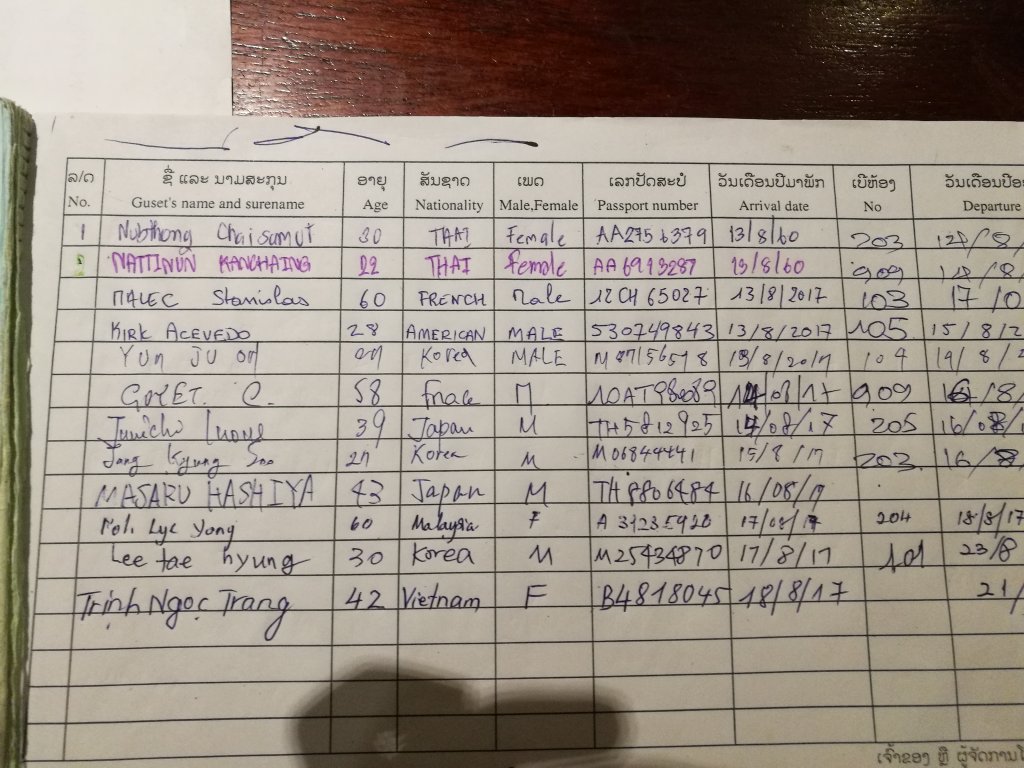 ລ/ດ ຊື່ ແລະ ນາມສະກຸນ ອາຍຸ ສັນຊາດ ເພດ ເລກປັດສະປໍ ວັນເດືອນປີມາພັກ ເບີຫ້ອງ ວັນເດືອນປີອ
No. Guset's name and surename Age Nationality Male,Female Passport number Arrival date No Departure
1 Nubthong Chaisamut 30 THAI Female AA2756379 13/8/60 203
NATTINUN KANCHAING 22 THAI female AA6913287 13/8/60 909
MALEC Stanislas 60 FRENCH Male 12CH65027 13/8/2017 103 17/0
KIRK ACEVEDO 28 AMERICAN MALE 530749843 13/8/2017 105 15/8/2
YUN JU ON Korea MALE 104 19/8/2
GOYET. C. 58 M 14/08/17 909
39 Japan M TH5812925 14/08/17 205
Jang Kyung Soo 27 Korea M M06844441 15/8/17 203 16/8
MASARU HASHIYA 43 Japan M TH8806484 16/08/17
Poh Lye Yong 60 Malaysia F A 31235920 17/08/17 204 18/8/17
Lee tae hyung 30 Korea M M25434870 17/8/17 101 23/8
Trịnh Ngọc Trang 42 Vietnam F B4818045 18/8/17 21/
ເຈົ້າຂອງ ຫຼື ຜູ້ຈັດການໂ